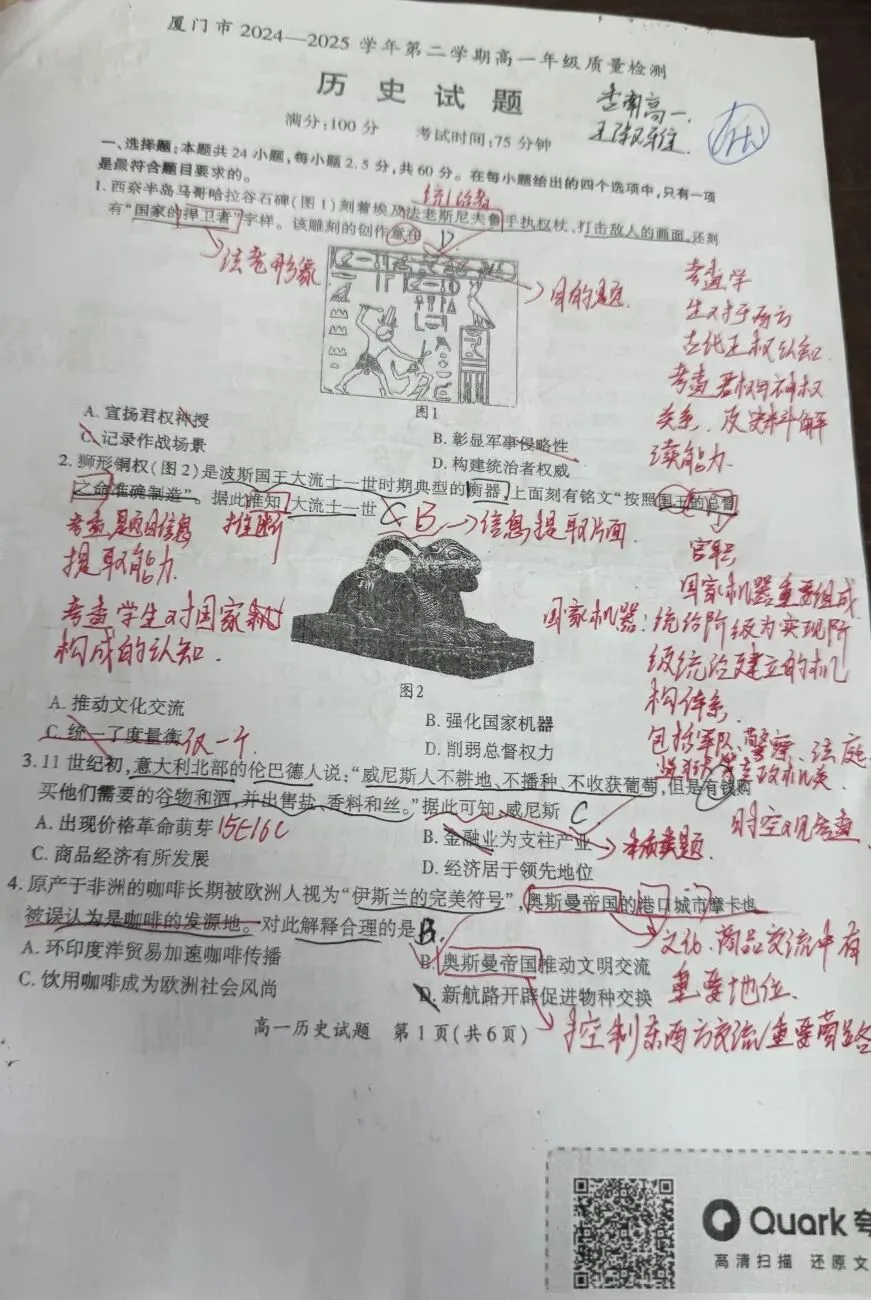 厦门市2024—2025学年第二学期高一年级质量检测
历史试题
满分:100分 考试时间:75分钟
一、选择题:本题共24小题,每小题2.5分,共60分。在每小题给出的四个选项中,只有一项
是最符合题目要求的。
统治者
1. 西奈半岛马哥哈拉谷石碑(图1)刻着埃及法老斯尼夫鲁手执权杖、打击敌人的画面,还刻
有“国家的捍卫者”字样。该雕刻的创作意在
D
法老形象
目的题
考查学
生对于
古代王权认知
考查君权与神权
关系,及史料解
读能力.
图1
A. 宣扬君权神授
B. 彰显军事侵略性
C. 记录作战场景
D. 构建统治者权威
2. 狮形铜权(图2)是波斯国王大流士一世时期典型的衡器,上面刻有铭文“按照国王的总督
之命准确制造”。据此推知,大流士一世
C B → 信息提取片面
考查题目信息
提取能力
推断
考查学生对国家
构成的认知.
官职
国家机器重要组成
国家机器:统治阶级为实现阶
级统治建立的机
构体系
包括军队、警察、法庭
图2
A. 推动文化交流
B. 强化国家机器
C. 统一了度量衡
仅一个.
D. 削弱总督权力
3. 11世纪初,意大利北部的伦巴德人说:“威尼斯人不耕地、不播种、不收获葡萄,但是有钱购
买他们需要的谷物和酒,并出售盐、香料和丝。”据此可知,威尼斯
C
A. 出现价格革命萌芽
15C16C
B. 金融业为支柱产业
本质类题
时空观考查
C. 商品经济有所发展
D. 经济居于领先地位
4. 原产于非洲的咖啡长期被欧洲人视为“伊斯兰的完美符号”,奥斯曼帝国的港口城市摩卡也
被误认为是咖啡的发源地。对此解释合理的是
B.
文化、商品交流中有
重要地位.
A. 环印度洋贸易加速咖啡传播
B. 奥斯曼帝国推动文明交流
C. 饮用咖啡成为欧洲社会风尚
D. 新航路开辟促进物种交换
控制东西方交流重要商路
高一历史试题 第1页(共6页)
Quark 夸
高清扫描 还原文